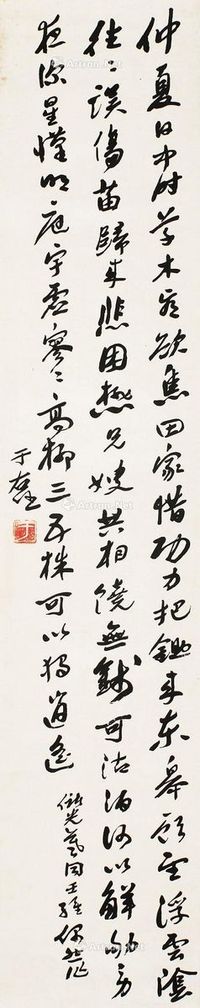 仲夏日中时草木看欲焦田家惜功力把锄来东皋顾望浮云阴
往往误伤苗归来悲困极兄嫂共相饶无钱可沽酒何以解劬劳
夜深星汉明庭宇虚寥寥高柳三五株可以独逍遥
储光羲同王维偶然作
于右任